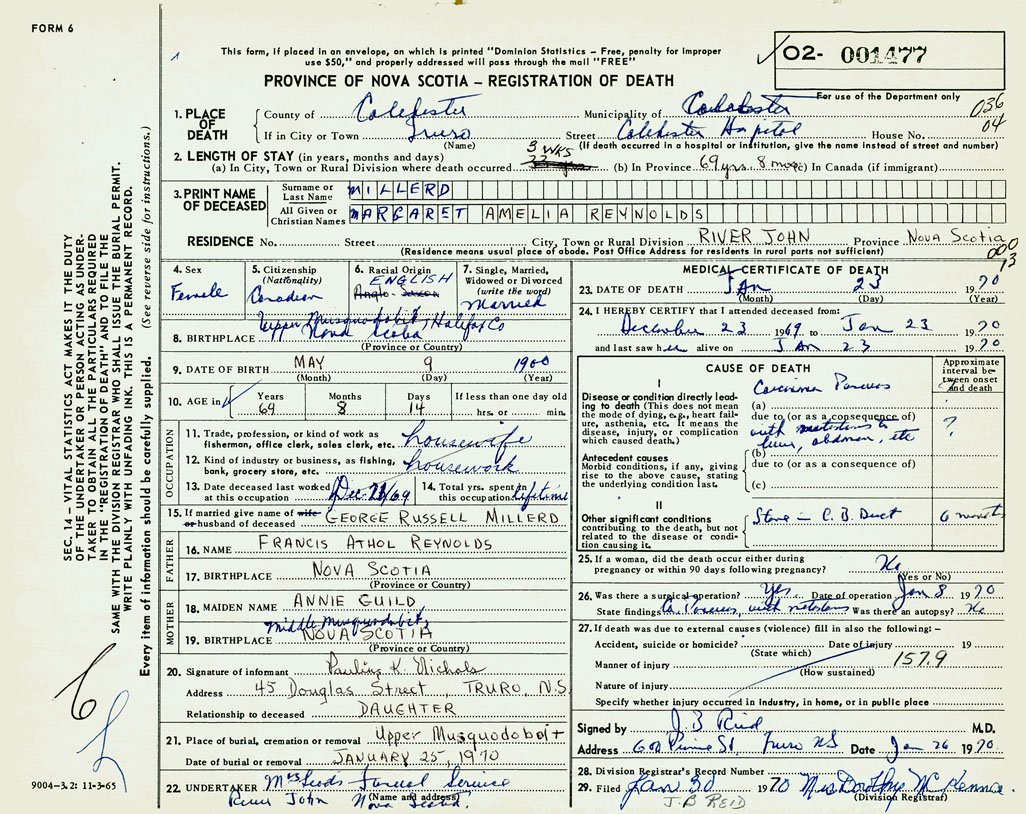 FORM 6
This form, if placed in an envelope, on which is printed "Dominion Statistics – Free, penalty for improper
use $50," and properly addressed will pass through the mail "FREE"
O2- 001477
PROVINCE OF NOVA SCOTIA – REGISTRATION OF DEATH
For use of the Department only
036
04
1. PLACE OF DEATH
County of Colchester Municipality of Colchester
If in City or Town Truro Street Colchester Hospital House No.
(Name) (If death occurred in a hospital or institution, give the name instead of street and number)
2. LENGTH OF STAY (in years, months and days)
(a) In City, Town or Rural Division where death occurred 3 WKS (b) In Province 69 yrs. 8 mos (c) In Canada (if immigrant)
3. PRINT NAME OF DECEASED
Surname or Last Name MILLERD
All Given or Christian Names MARGARET AMELIA REYNOLDS
RESIDENCE No. Street City, Town or Rural Division RIVER JOHN Province NOVA SCOTIA
(Residence means usual place of abode. Post Office Address for residents in rural parts not sufficient)
000
13
4. Sex Female
5. Citizenship (Nationality) Canadian
6. Racial Origin ENGLISH Anglo-Saxon
7. Single, Married, Widowed or Divorced (write the word) Married
8. BIRTHPLACE Upper Musquodoboit, Halifax Co Nova Scotia
(Province or Country)
9. DATE OF BIRTH MAY 9 1900
(Month) (Day) (Year)
10. AGE in Years 69 Months 8 Days 14 If less than one day old hrs. or min.
OCCUPATION
11. Trade, profession, or kind of work as fisherman, office clerk, sales clerk, etc. housewife
12. Kind of industry or business, as fishing, bank, grocery store, etc. housework
13. Date deceased last worked at this occupation Dec /69
14. Total yrs. spent in this occupation lifetime
15. If married give name of wife or husband of deceased GEORGE RUSSELL MILLERD
FATHER
16. NAME FRANCIS ATHOL REYNOLDS
17. BIRTHPLACE NOVA SCOTIA
(Province or Country)
MOTHER
18. MAIDEN NAME ANNIE GUILD
19. BIRTHPLACE Middle Musquodoboit, NOVA SCOTIA
(Province or Country)
20. Signature of informant Pauline K. Nichols
Address 45 Douglas Street, TRURO, N.S.
Relationship to deceased DAUGHTER
21. Place of burial, cremation or removal Upper Musquodoboit
Date of burial or removal JANUARY 25, 1970
22. UNDERTAKER Funeral Service
River John Nova Scotia.
(Name and address)
MEDICAL CERTIFICATE OF DEATH
23. DATE OF DEATH JAN 23 1970
(Month) (Day) (Year)
24. I HEREBY CERTIFY that I attended deceased from:
December 23 1969 to Jan 23 1970
and last saw her alive on JAN 23 1970
CAUSE OF DEATH
Approximate interval between onset and death
I
Disease or condition directly leading to death (This does not mean the mode of dying, e.g., heart failure, asthenia, etc. It means the disease, injury, or complication which caused death.)
(a) Carcinoma Pancreas ?
due to (or as a consequence of)
with metastases to liver, abdomen, etc ?
(b)
Antecedent causes
Morbid conditions, if any, giving rise to the above cause, stating the underlying condition last.
due to (or as a consequence of)
(c)
II
Other significant conditions contributing to the death, but not related to the disease or condition causing it.
Stone in C. B. Duct 6 months
25. If a woman, did the death occur either during pregnancy or within 90 days following pregnancy? No
(Yes or No)
26. Was there a surgical operation? Yes. Date of operation Jan 8 1970
State findings Ca Pancreas, with metastases Was there an autopsy? No
27. If death was due to external causes (violence) fill in also the following: –
Accident, suicide or homicide? Date of injury 19
(State which)
Manner of injury 157.9
(How sustained)
Nature of injury
Specify whether injury occurred in industry, in home, or in public place
Signed by J. B Reid M.D.
Address 600 Prince St, Truro NS Date Jan 26 1970
28. Division Registrar's Record Number
29. Filed Jan 30 1970 Mrs Dorothy McKenna
(Division Registrar)
J.B REID
SEC. 14 – VITAL STATISTICS ACT MAKES IT THE DUTY
OF THE UNDERTAKER OR PERSON ACTING AS UNDER-
TAKER TO OBTAIN ALL THE PARTICULARS REQUIRED
IN THE "REGISTRATION OF DEATH" AND TO FILE THE
SAME WITH THE DIVISION REGISTRAR WHO SHALL ISSUE THE BURIAL PERMIT.
WRITE PLAINLY WITH UNFADING INK. THIS IS A PERMANENT RECORD.
Every item of information should be carefully supplied. (See reverse side for instructions.)
6
9004-3.2: 11-3-65